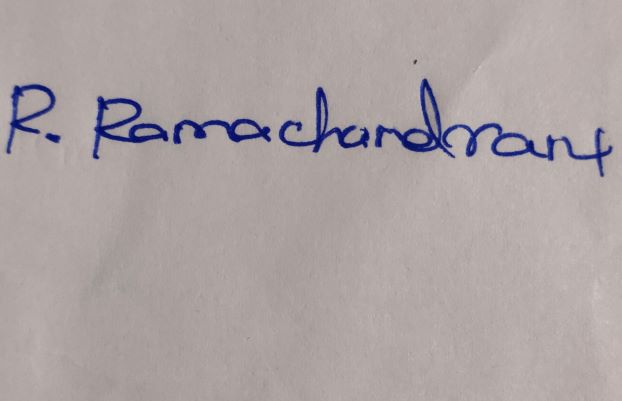 R. Ramachandran